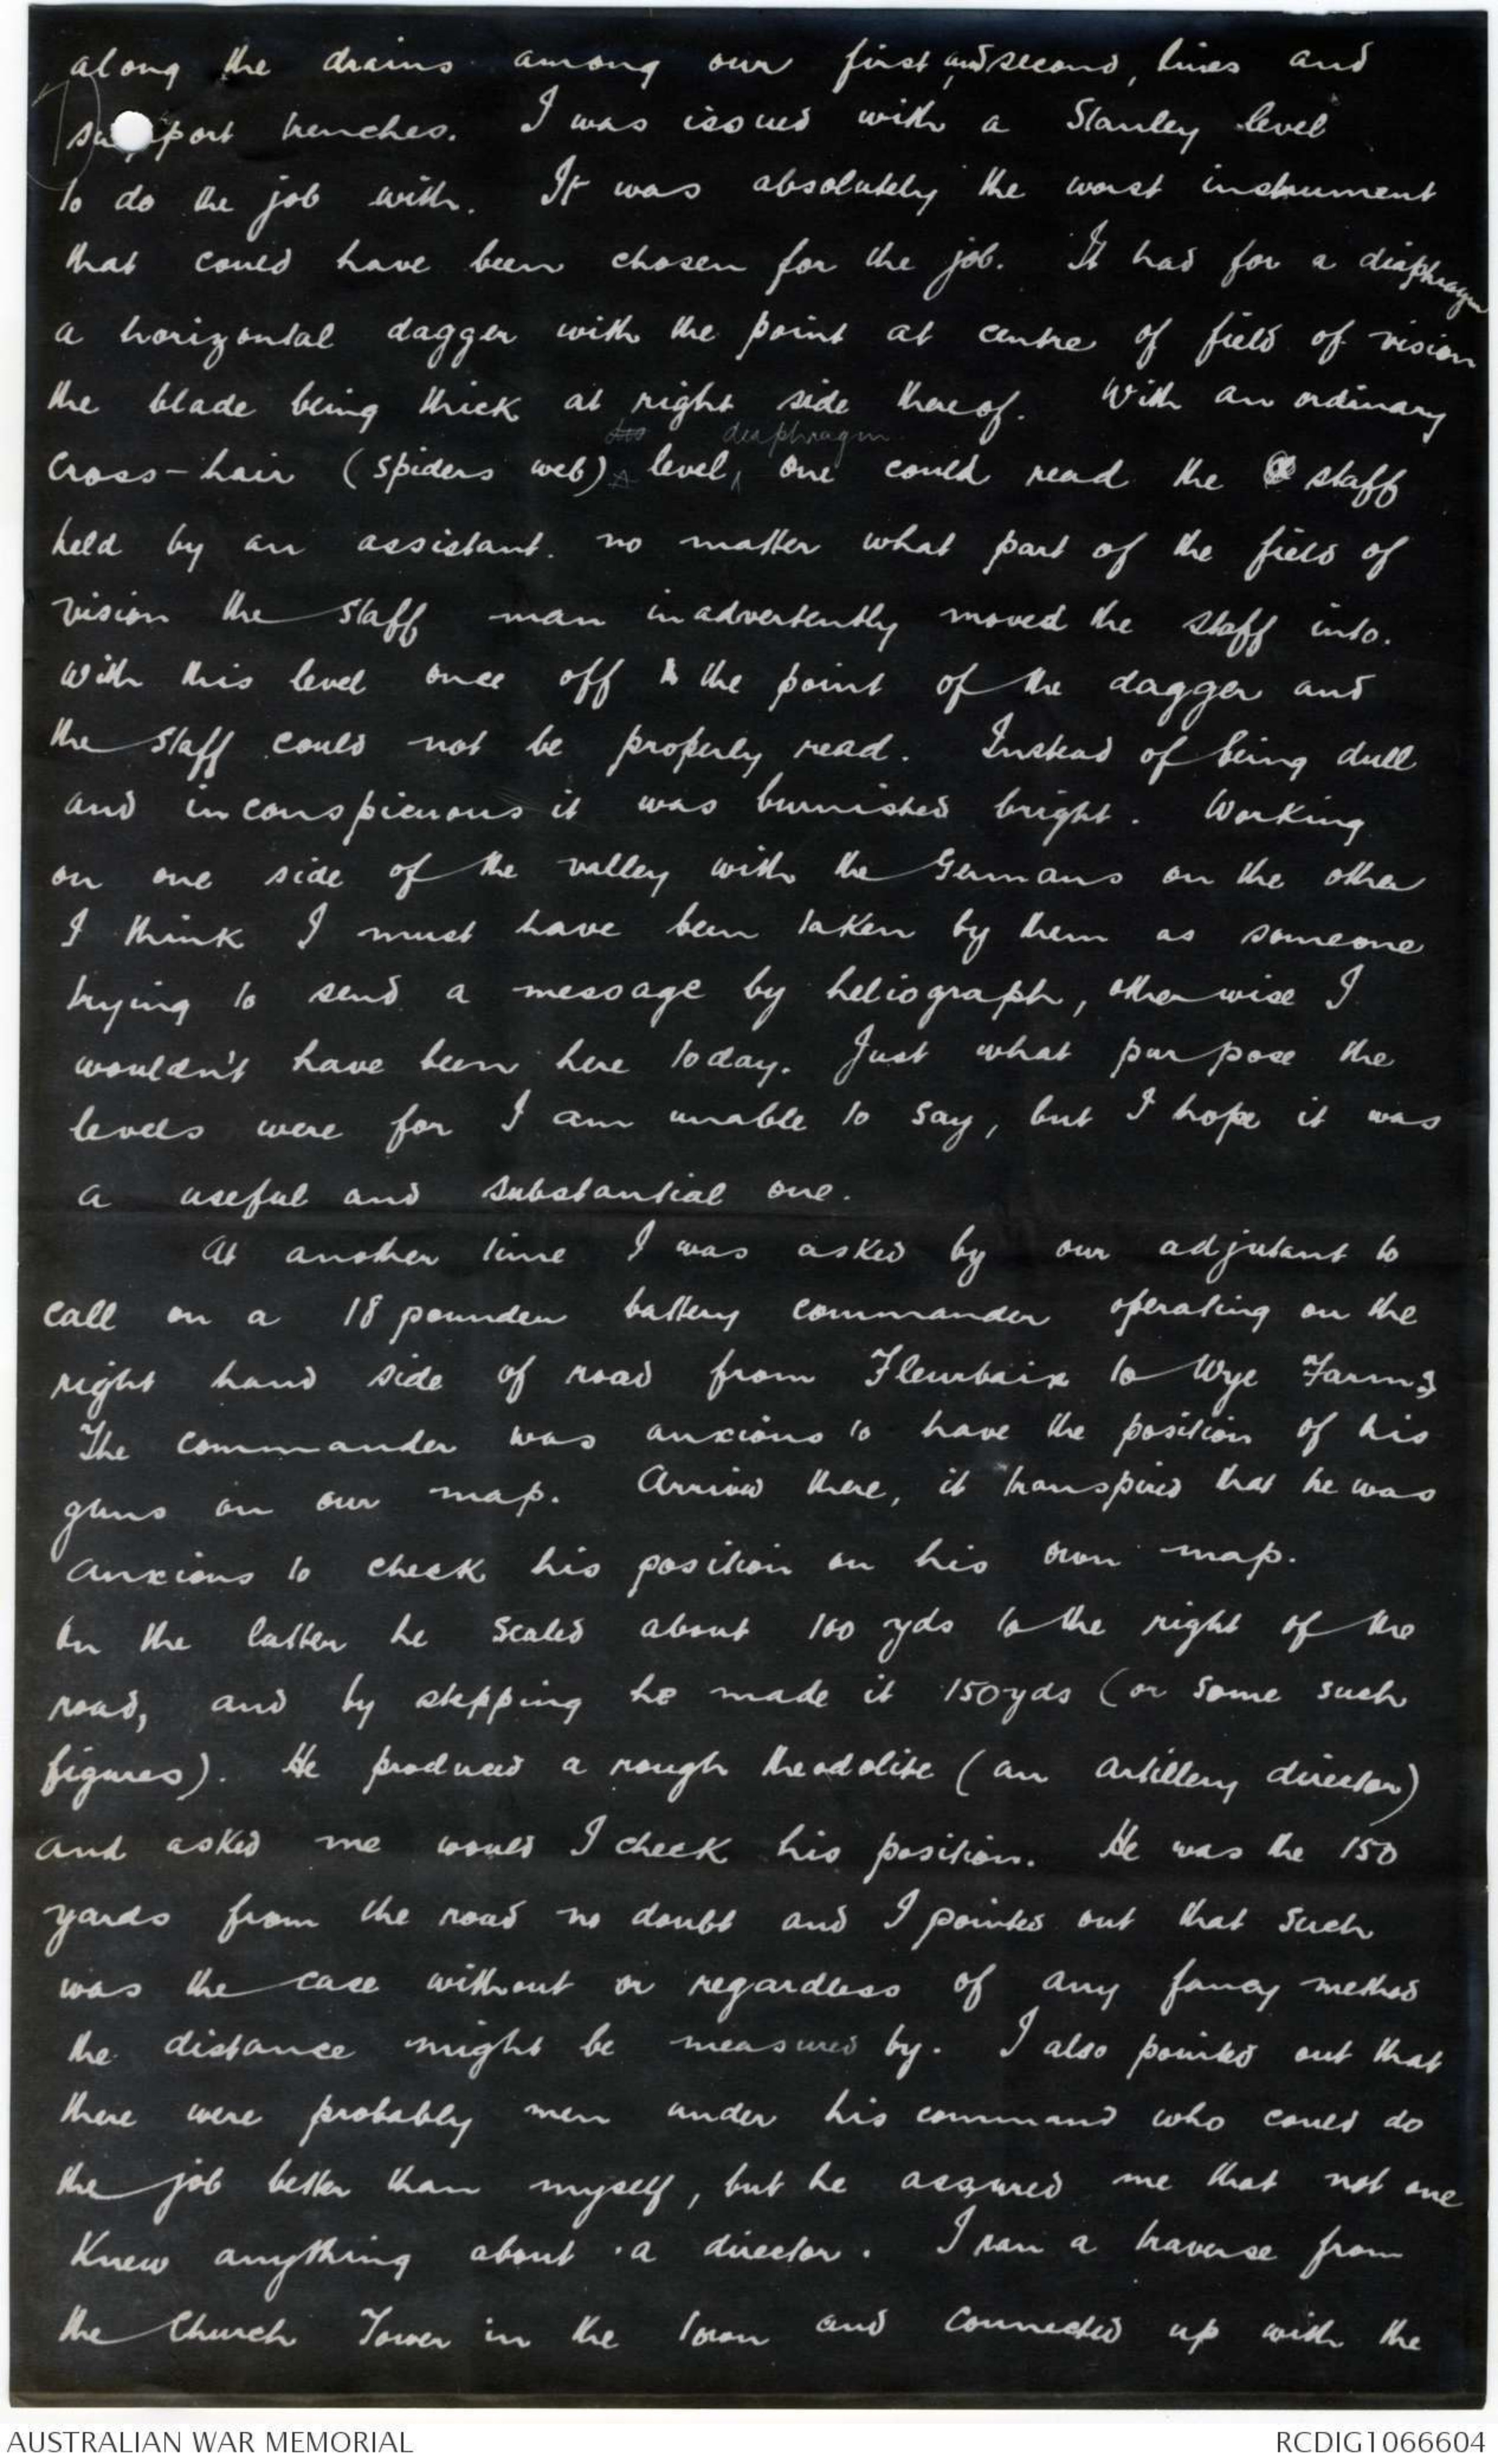 along the drains among our first and second, lines and
support trenches. I was issued with a Stanley level
to do the job with. It was absolutely the worst instrument
that could have been chosen for the job. It had for a diaphragm
a horizontal dagger with the point at centre of field of vision
the blade being thick at right side thereof. With an ordinary
diaphragm
cross-hair (spiders web) level, one could read the staff
held by an assistant. no matter what part of the field of
vision the staff man inadvertently moved the staff into.
With this level once off the point of the dagger and
the staff could not be properly read. Instead of being dull
and inconspicuous it was burnished bright. Working
on one side of the valley with the Germans on the other
I think I must have been taken by them as someone
trying to send a message by heliograph, otherwise I
wouldn't have been here today. Just what purpose the
levels were for I am unable to say, but I hope it was
a useful and substantial one.
At another time I was asked by our adjutant to
call on a 18 pounder battery commander operating on the
right hand side of road from Fleurbaix to Wye Farm,
The commander was anxious to have the position of his
guns on our map. Arrived there, it transpired that he was
anxious to check his position on his own map.
On the latter he scaled about 100 yds to the right of the
road, and by stepping he made it 150yds (or some such
figures). He produced a rough theodolite (an artillery director)
and asked me would I check his position. He was the 150
yards from the road no doubt and I pointed out that such
was the case without or regardless of any fancy method
the distance might be measured by. I also pointed out that
there were probably men under his command who could do
the job better than myself, but he assured me that not one
knew anything about a director. I ran a traverse from
the Church Tower in the town and connected up with the
AUSTRALIAN WAR MEMORIAL
RCDIG1066604